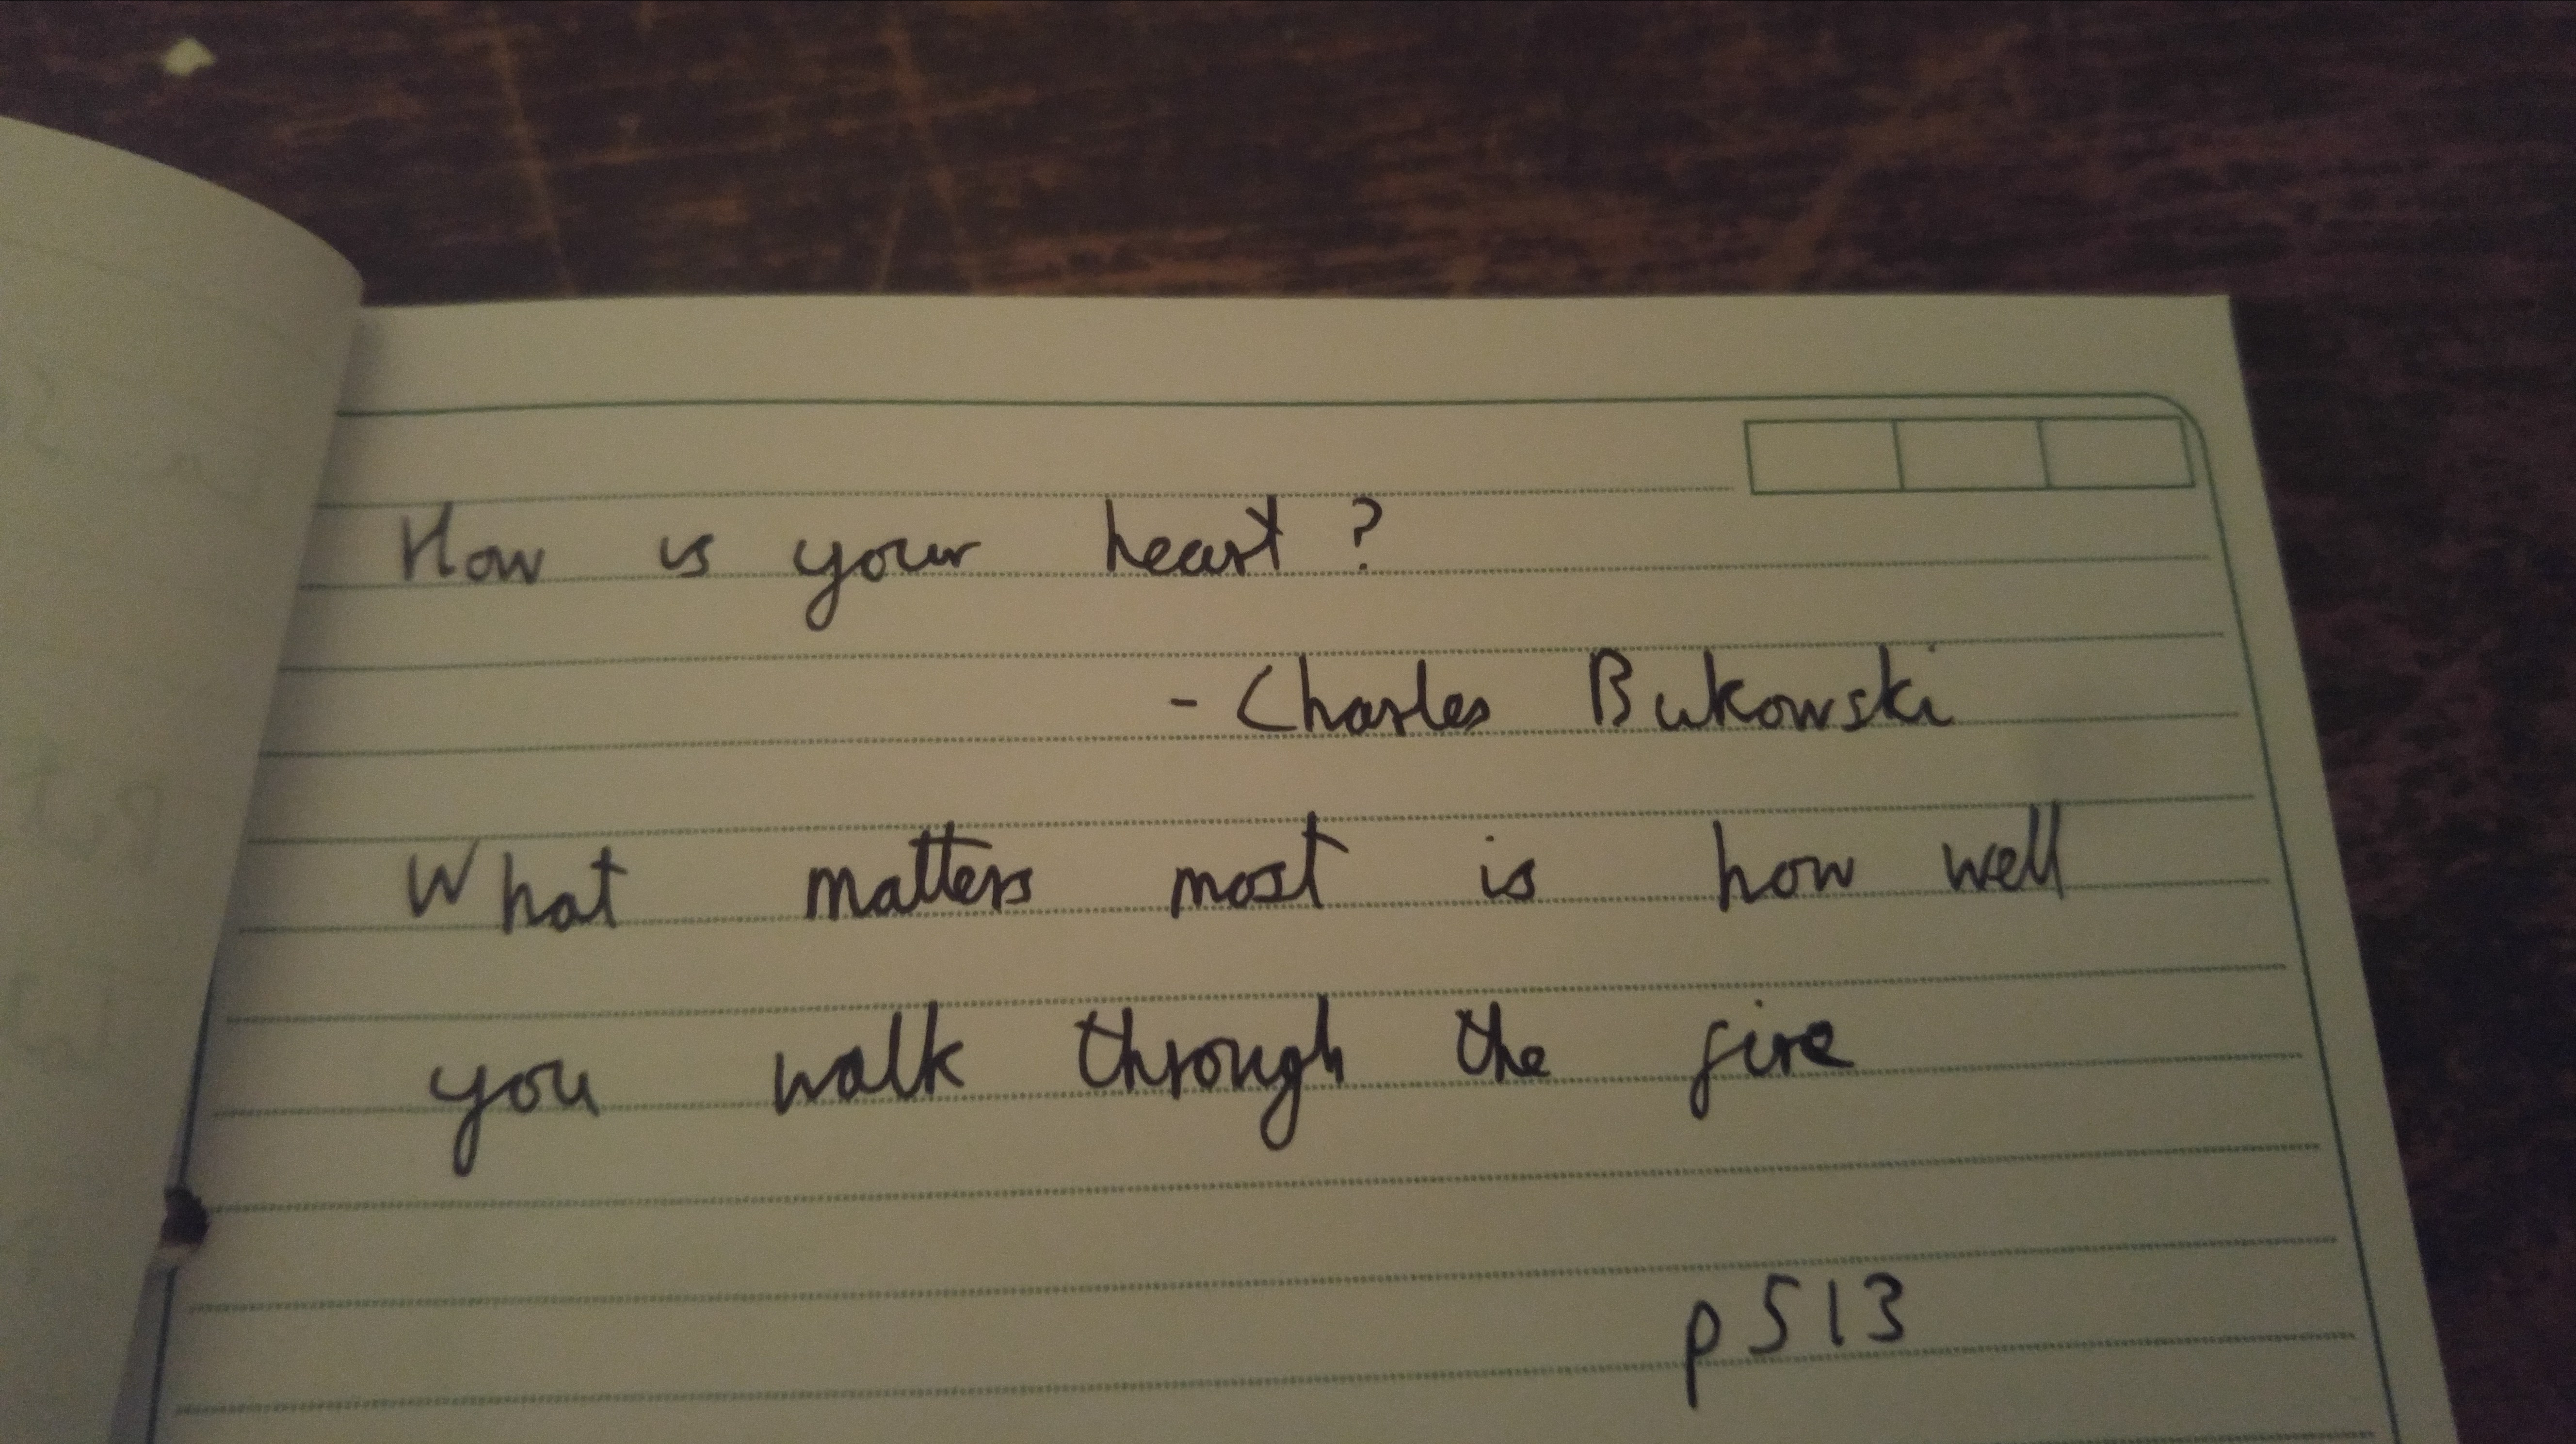 How is your heart?
- Charles Bukowski
What matters most is how well
you walk through the fire
p513